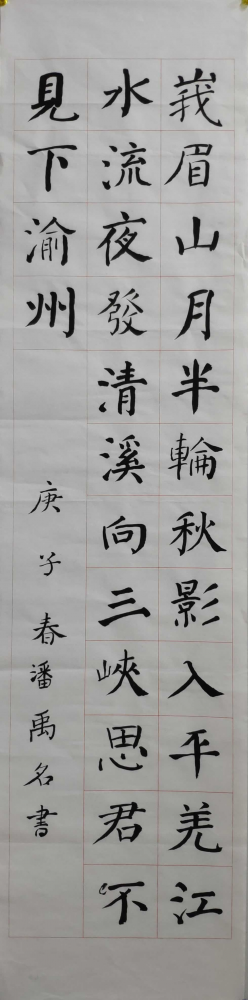 峩眉山月半輪秋影入平羌江
水流夜發清溪向三峽思君不
見下渝州
庚子春潘禹名書